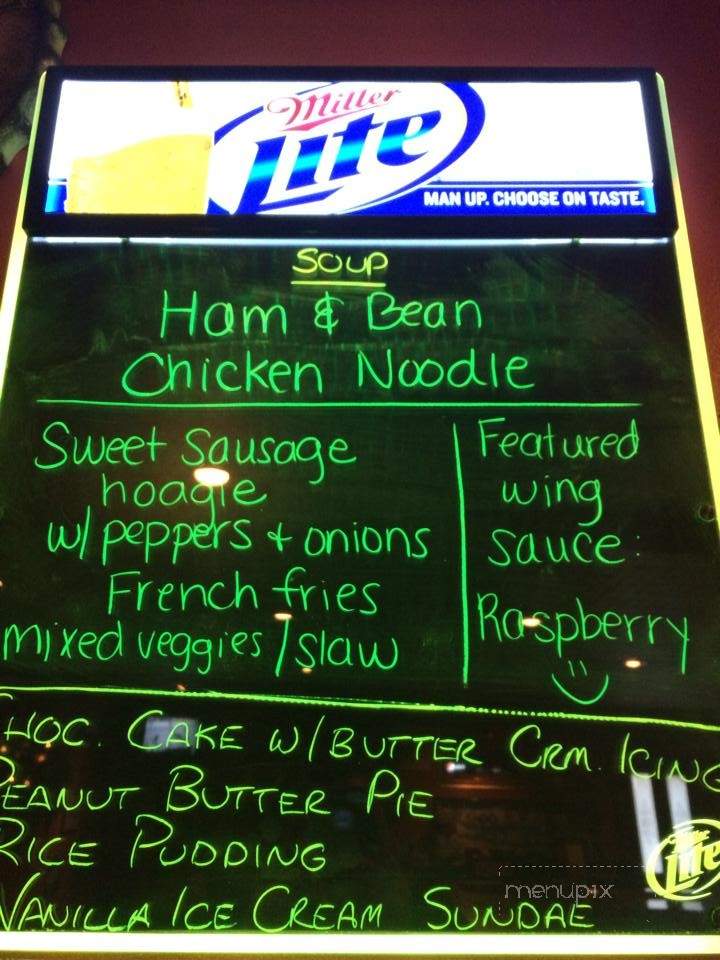 Miller
Lite
MAN UP. CHOOSE ON TASTE.
SOUP
Ham & Bean
Chicken Noodle
Sweet Sausage
hoagie
w/ peppers + onions
French fries
mixed veggies / slaw
Featured
wing
sauce:
Raspberry
CHOC. CAKE W/ BUTTER CRM. ICING
PEANUT BUTTER PIE
RICE PUDDING
VANILLA ICE CREAM SUNDAE
Miller
Lite
menupix